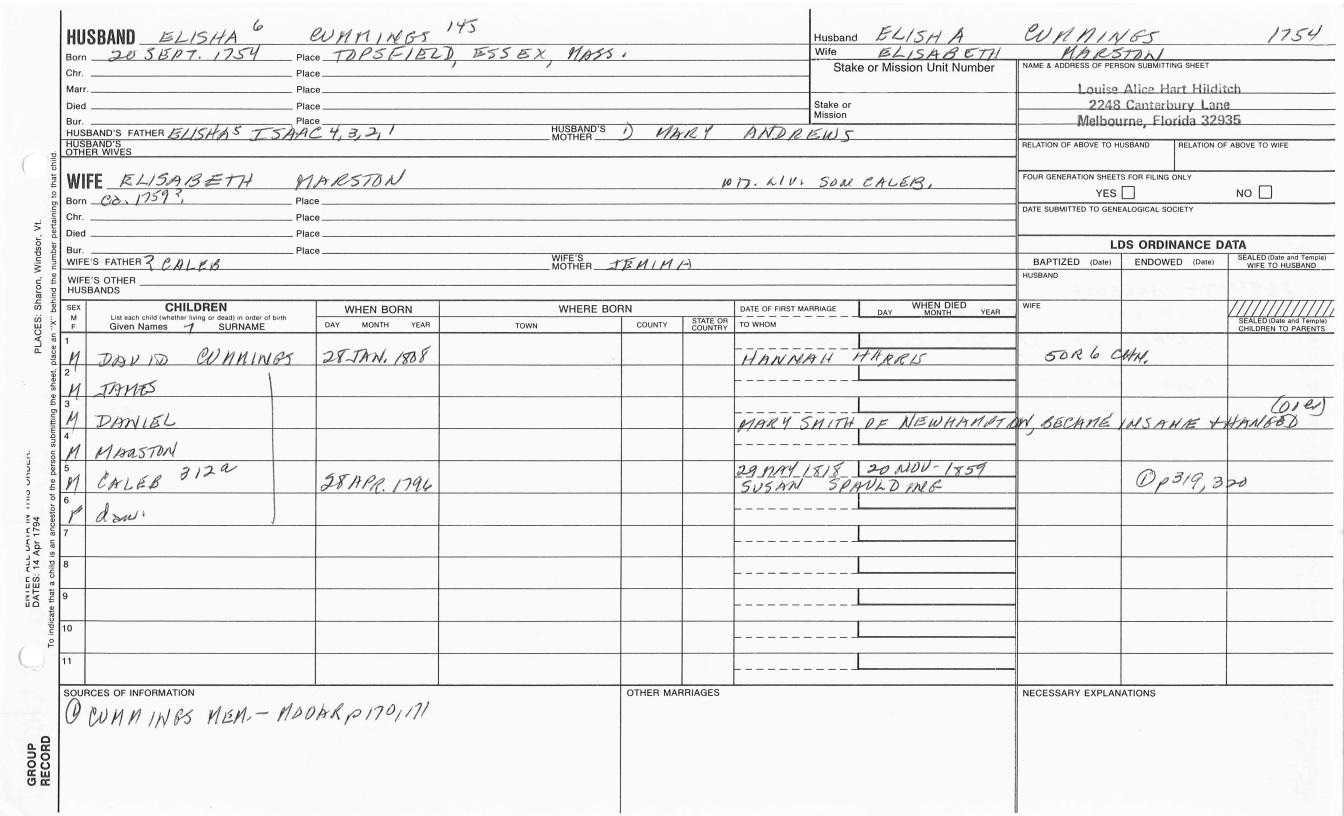 HUSBAND ELISHA 6 CUMMINGS 145
Born 20 SEPT. 1754 Place TOPSFIELD, ESSEX, MASS.
Chr. Place
Marr. Place
Died Place
Bur. Place
HUSBAND'S FATHER ELISHA5 ISAAC 4, 3, 2, 1 HUSBAND'S MOTHER 1) MARY ANDREWS
HUSBAND'S OTHER WIVES
Husband ELISHA CUMMINGS 1754
Wife ELISABETH MARSTON
Stake or Mission Unit Number
Stake or Mission
NAME & ADDRESS OF PERSON SUBMITTING SHEET
Louise Alice Hart Hilditch
2248 Canterbury Lane
Melbourne, Florida 32935
RELATION OF ABOVE TO HUSBAND RELATION OF ABOVE TO WIFE
FOUR GENERATION SHEETS FOR FILING ONLY
YES NO
DATE SUBMITTED TO GENEALOGICAL SOCIETY
WIFE ELISABETH MARSTON WD. LIV. SON CALEB.
Born Ca. 1759?. Place
Chr. Place
Died Place
Bur. Place
WIFE'S FATHER ? CALEB WIFE'S MOTHER JEMIMA
WIFE'S OTHER HUSBANDS
LDS ORDINANCE DATA
BAPTIZED (Date) ENDOWED (Date) SEALED (Date and Temple) WIFE TO HUSBAND
HUSBAND
WIFE
SEALED (Date and Temple) CHILDREN TO PARENTS
SEX M F
CHILDREN
List each child (whether living or dead) in order of birth
Given Names 7 SURNAME
WHEN BORN
DAY MONTH YEAR
WHERE BORN
TOWN COUNTY STATE OR COUNTRY
DATE OF FIRST MARRIAGE
TO WHOM
WHEN DIED
DAY MONTH YEAR
1
M DAVID CUMMINGS 28 JAN. 1808 HANNAH HARRIS 5 OR 6 CHN.
2
M JAMES
3 (over)
M DANIEL MARY SMITH OF NEWHAMPTON, BECAME INSANE + HANGED
4
M MARSTON
5 29 MAY 1818 20 NOV - 1859
M CALEB 312a 28 APR. 1796 SUSAN SPAULDING ① p319, 320
6
F dau.
7
8
9
10
11
SOURCES OF INFORMATION
① CUMMINGS MEM. - MOOAR p170, 171
OTHER MARRIAGES
NECESSARY EXPLANATIONS
PLACES: Sharon, Windsor, Vt.
DATES: 14 Apr 1794
To indicate that a child is an ancestor of the person submitting the sheet, place an "X" behind the number pertaining to that child.
GROUP RECORD